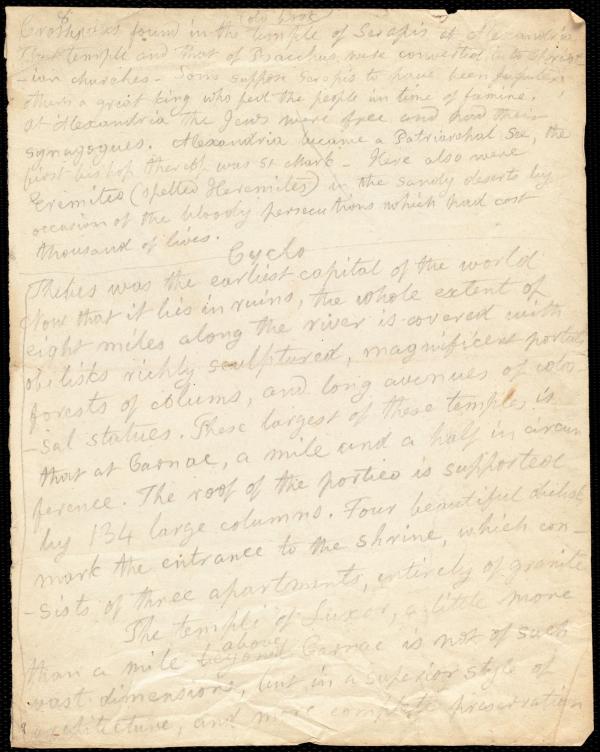 8
Old Book
Cross was found in the temple of Serapis at Alexandria
That temple and that of Bacchus, were converted into christ
-ian churches - Some suppose Serapis to have been Jupiter.
others a great king who fed the people in time of famine.
At Alexandria the Jews were free and had their
synagogues. Alexandria became a Patriarchal See, the
first bishop thereof was St Mark - Here also were
Eremites (spelled Heremites) in the sandy deserts by
occasion of the bloody persecutions which had cost
thousand of lives.
Cyclo
Thebes was the earliest capital of the world
Now that it lies in ruins, the whole extent of
eight miles along the river is covered with
obelisks richly sculptured, magnificent portals
forests of colums, and long avenues of colos
-sal statues. These largest of these temples is
that at Carnac, a mile and a half in circum
ference. The roof of the portico is supported
by 134 large columns. Four beautiful obelisks
mark the entrance to the shrine, which con-
-sists of three apartments, entirely of granite
The temple of Luxor, a little more
above
than a mile beyond Carnac is not of such
vast dimensions, but in a superior style of
architecture, and more complete preservation